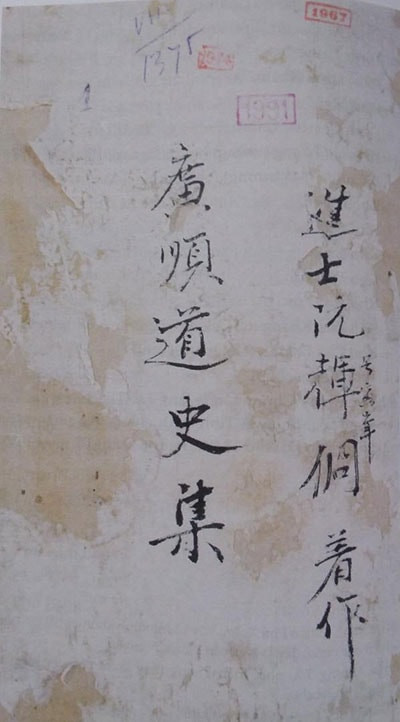 VH
1375
1
1967
1991
進士阮輝 著作
廣順道史集